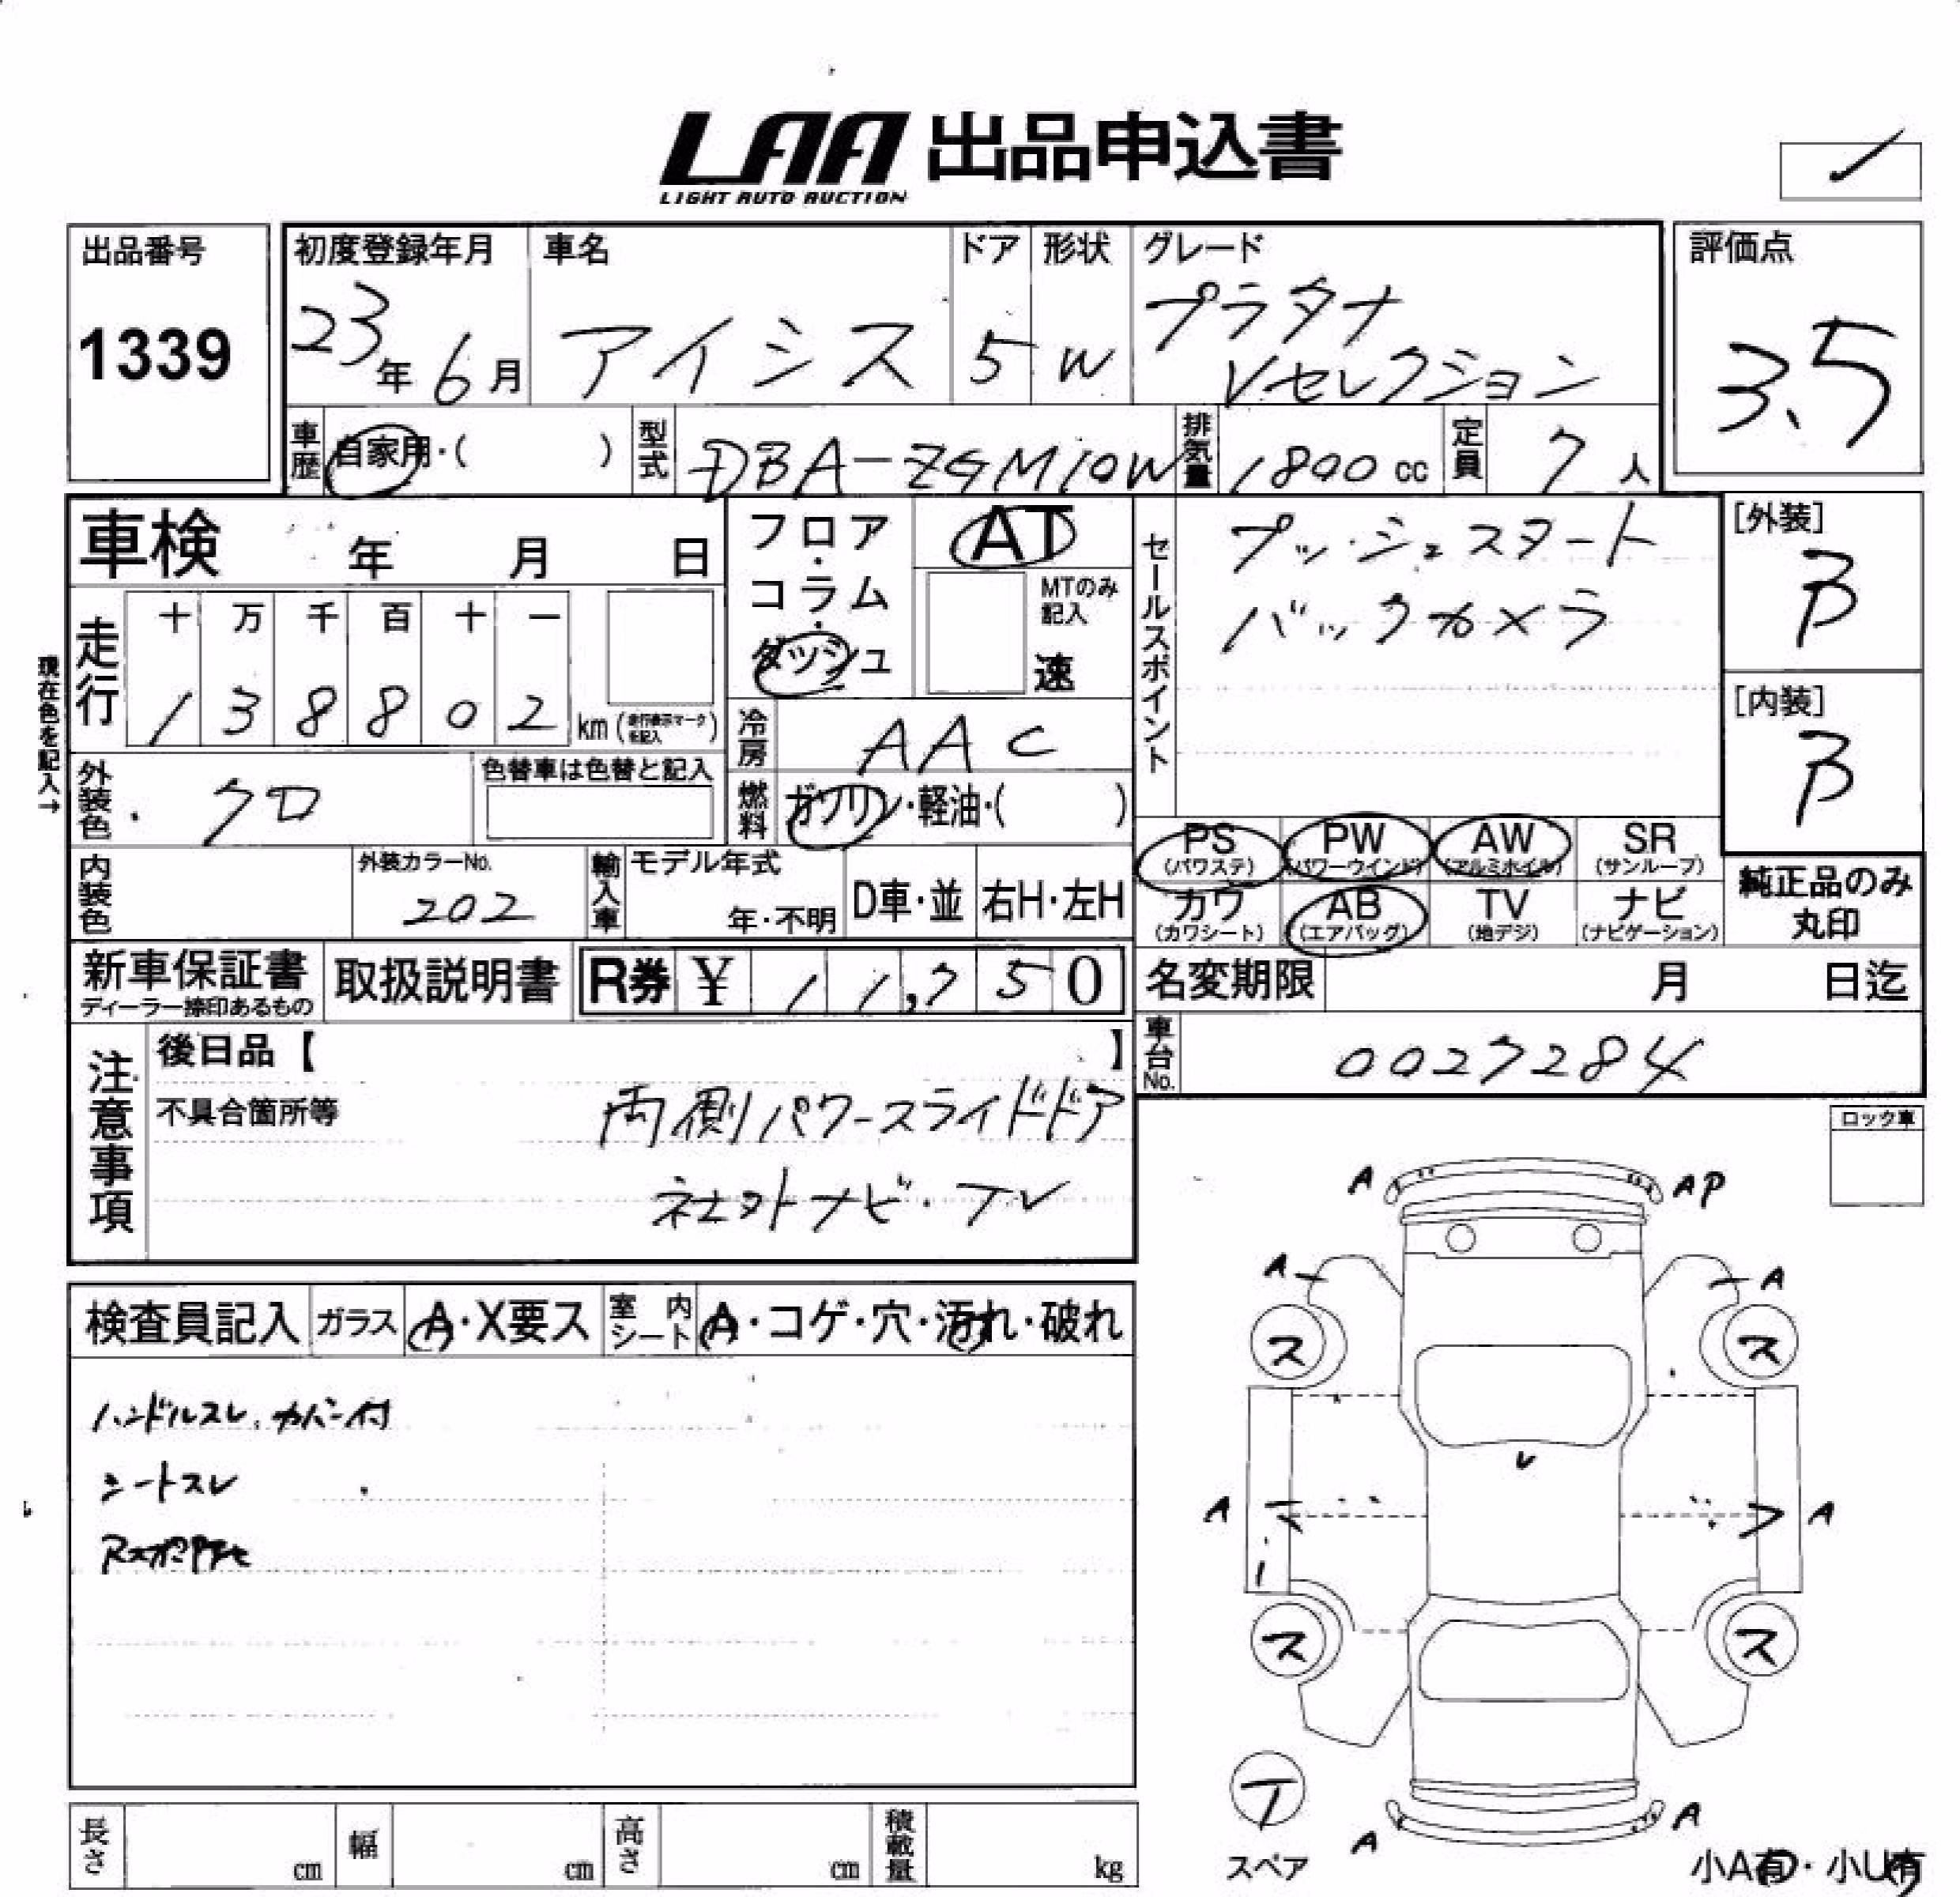 LAA 出品申込書
LIGHT AUTO AUCTION
出品番号
1339
初度登録年月
23年 6月
車名
アイシス
ドア
5
形状
W
グレード
プラタナ
Vセレクション
評価点
3.5
車歴
自家用・( )
型式
DBA-ZGM10W
排気量
1800 cc
定員
7 人
車検 年 月 日
フロア・コラム・ダッシュ
AT
MTのみ記入
速
セールスポイント
プッシュスタート
バックカメラ
[外装]
B
[内装]
B
現在色を記入→
走行
十 万 千 百 十 一
1 3 8 8 0 2 km (走行表示マークを記入)
冷房
AAC
外装色
クロ
色替車は色替と記入
燃料
ガソリン・軽油・( )
PS (パワステ)
PW (パワーウインド)
AW (アルミホイル)
SR (サンルーフ)
カワ (カワシート)
AB (エアバッグ)
TV (地デジ)
ナビ (ナビゲーション)
純正品のみ丸印
内装色
外装カラーNo.
202
輸入車
モデル年式
年・不明
D車・並
右H・左H
新車保証書
ディーラー捺印あるもの
取扱説明書
R券 ¥ 11,750
名変期限 月 日迄
車台No.
0027284
注意事項
後日品【 】
不具合箇所等
両側パワースライドドア
社外ナビ・TV
ロック車
検査員記入
ガラス
A・X要ス
室内シート
A・コゲ・穴・汚れ・破れ
ハンドルスレ、カバー付
シートスレ
A
A P
A
A
ス
ス
A
A
ス
ス
A
A
スペア
小A有・小U有
長さ cm
幅 cm
高さ cm
積載量 kg